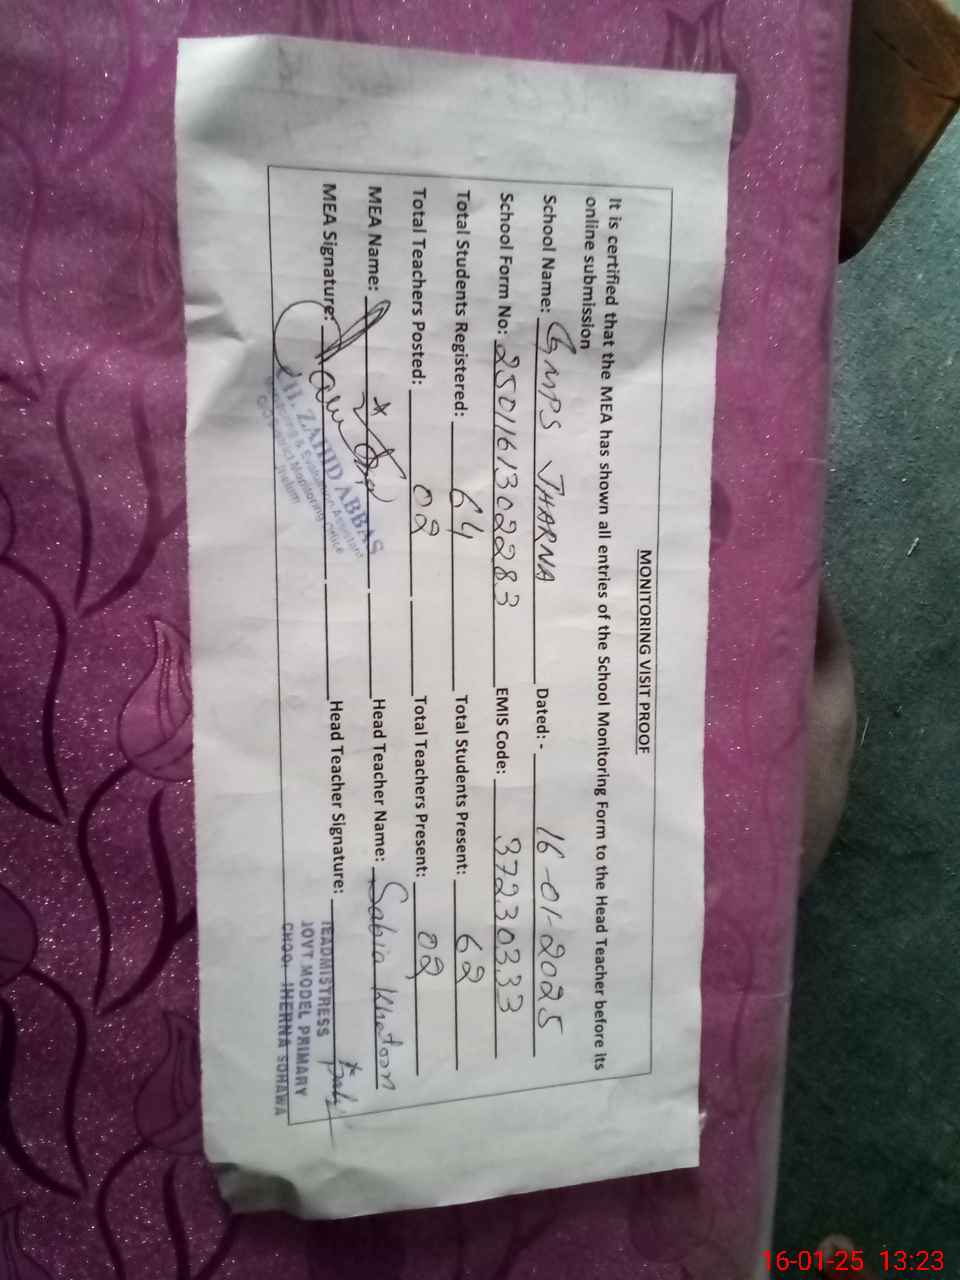 MONITORING VISIT PROOF
It is certified that the MEA has shown all entries of the School Monitoring Form to the Head Teacher before its
online submission
School Name: GMPS JHARNA Dated: - 16-01-2025
School Form No: 2501161302283 EMIS Code: 37230333
Total Students Registered: 64 Total Students Present: 62
Total Teachers Posted: 02 Total Teachers Present: 02
MEA Name: Head Teacher Name: Sabia Khatoon
MEA Signature: Head Teacher Signature:
ZAHID ABBAS
Monitoring & Evaluation Assistant
District Monitoring Office
Jhelum
HEADMISTRESS
GOVT MODEL PRIMARY
SCHOOL JHERNA SOHAWA
16-01-25 13:23